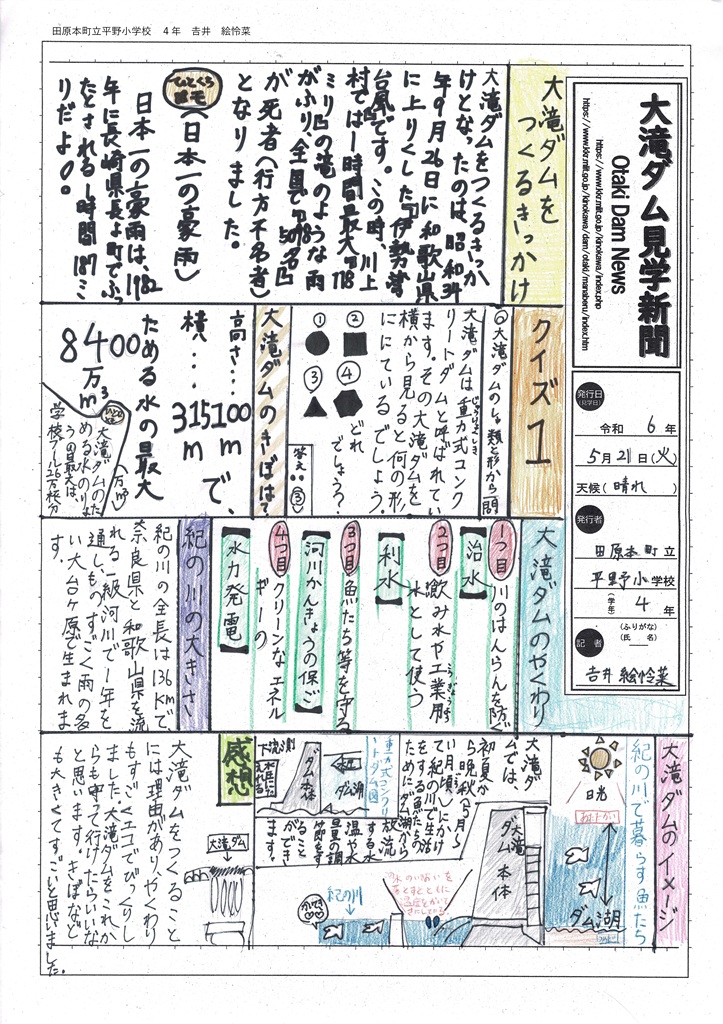 田原本町立平野小学校 4年 吉井 絵怜菜
大滝ダム見学新聞
Otaki Dam News
https://www.kkr.mlit.go.jp/kinokawa/index.php
https://www.kkr.mlit.go.jp/kinokawa/dam/otaki/manaberu/index.htm
発行日
(見学日)
令和 6年
5月21日(火)
天候(晴れ)
発行者
田原本町立
平野小学校
(学年) 4年
記者
(ふりがな)
(氏名)
吉井 絵怜菜
大滝ダムを
つくるきっかけ
大滝ダムをつくるきっか
けとなったのは、昭和34
年9月26日に和歌山県
に上りくした「伊勢湾
台風」です。この時、川上
村では1時間最大118
ミリの滝のような雨
がふり、全国で
が死者(行方不名者)
となりました。
ひとくち
メモ
(日本一の豪雨)
日本一の豪雨は、1982
年に長崎県長よ町でふっ
たとされる1時間187ミ
リだよ。
クイズ1
大滝ダムのしゅ類と形から一問
大滝ダムは重力式コンク
じゅうりょくしき
リートダムと呼ばれてい
ます。その大滝ダムを
横から見ると何の形
ににているでしょう。
① ②
③ ④
どれ
でしょう?
答え:③
大滝ダムのきぼは?
高さ…100mで、
横…315m
ためる水の最大
8400万m³
(万m³)
大滝ダムのた
める水のりょ
うの最大は、
学校プール26万杯分
大滝ダムのやくわり
1つ目
川のはんらんを防ぐ
【治水】
2つ目
飲み水や工業用
水として使う
【利水】
3つ目
魚たち等を守る
【河川かんきょうの保ご】
4つ目
クリーンなエネル
ギーの
【水力発電】
紀の川の大きさ
紀の川の全長は136kmで、
奈良県と和歌山県を流
れる一級河川で1年を
通し、ものすごく雨の多
い大台ケ原で生まれま
す。
大滝ダムのイメージ
紀の川で暮らす魚たち
日光
あたたかい
ダム湖
大滝
ダム本体
大滝ダ
ムでは、
初夏か
ら晩秋(4月～
11月頃)にかけ
て紀の川で生活
をする魚たちの
ためにダム湖から
放流
する水
温や水
量の調
節をす
ること
ができ
ます。
重力式コンクリ
ートダム図
下流側
ダム本体
ダム湖
水圧
紀の川
感想
大滝ダムをつくること
には理由があり、やくわり
もすごくエコでびっくりし
ました。大滝ダムをこれか
らも守って行けたらいいな
と思います。きぼなど
も大きくてすごいと思いました。
大滝ダム